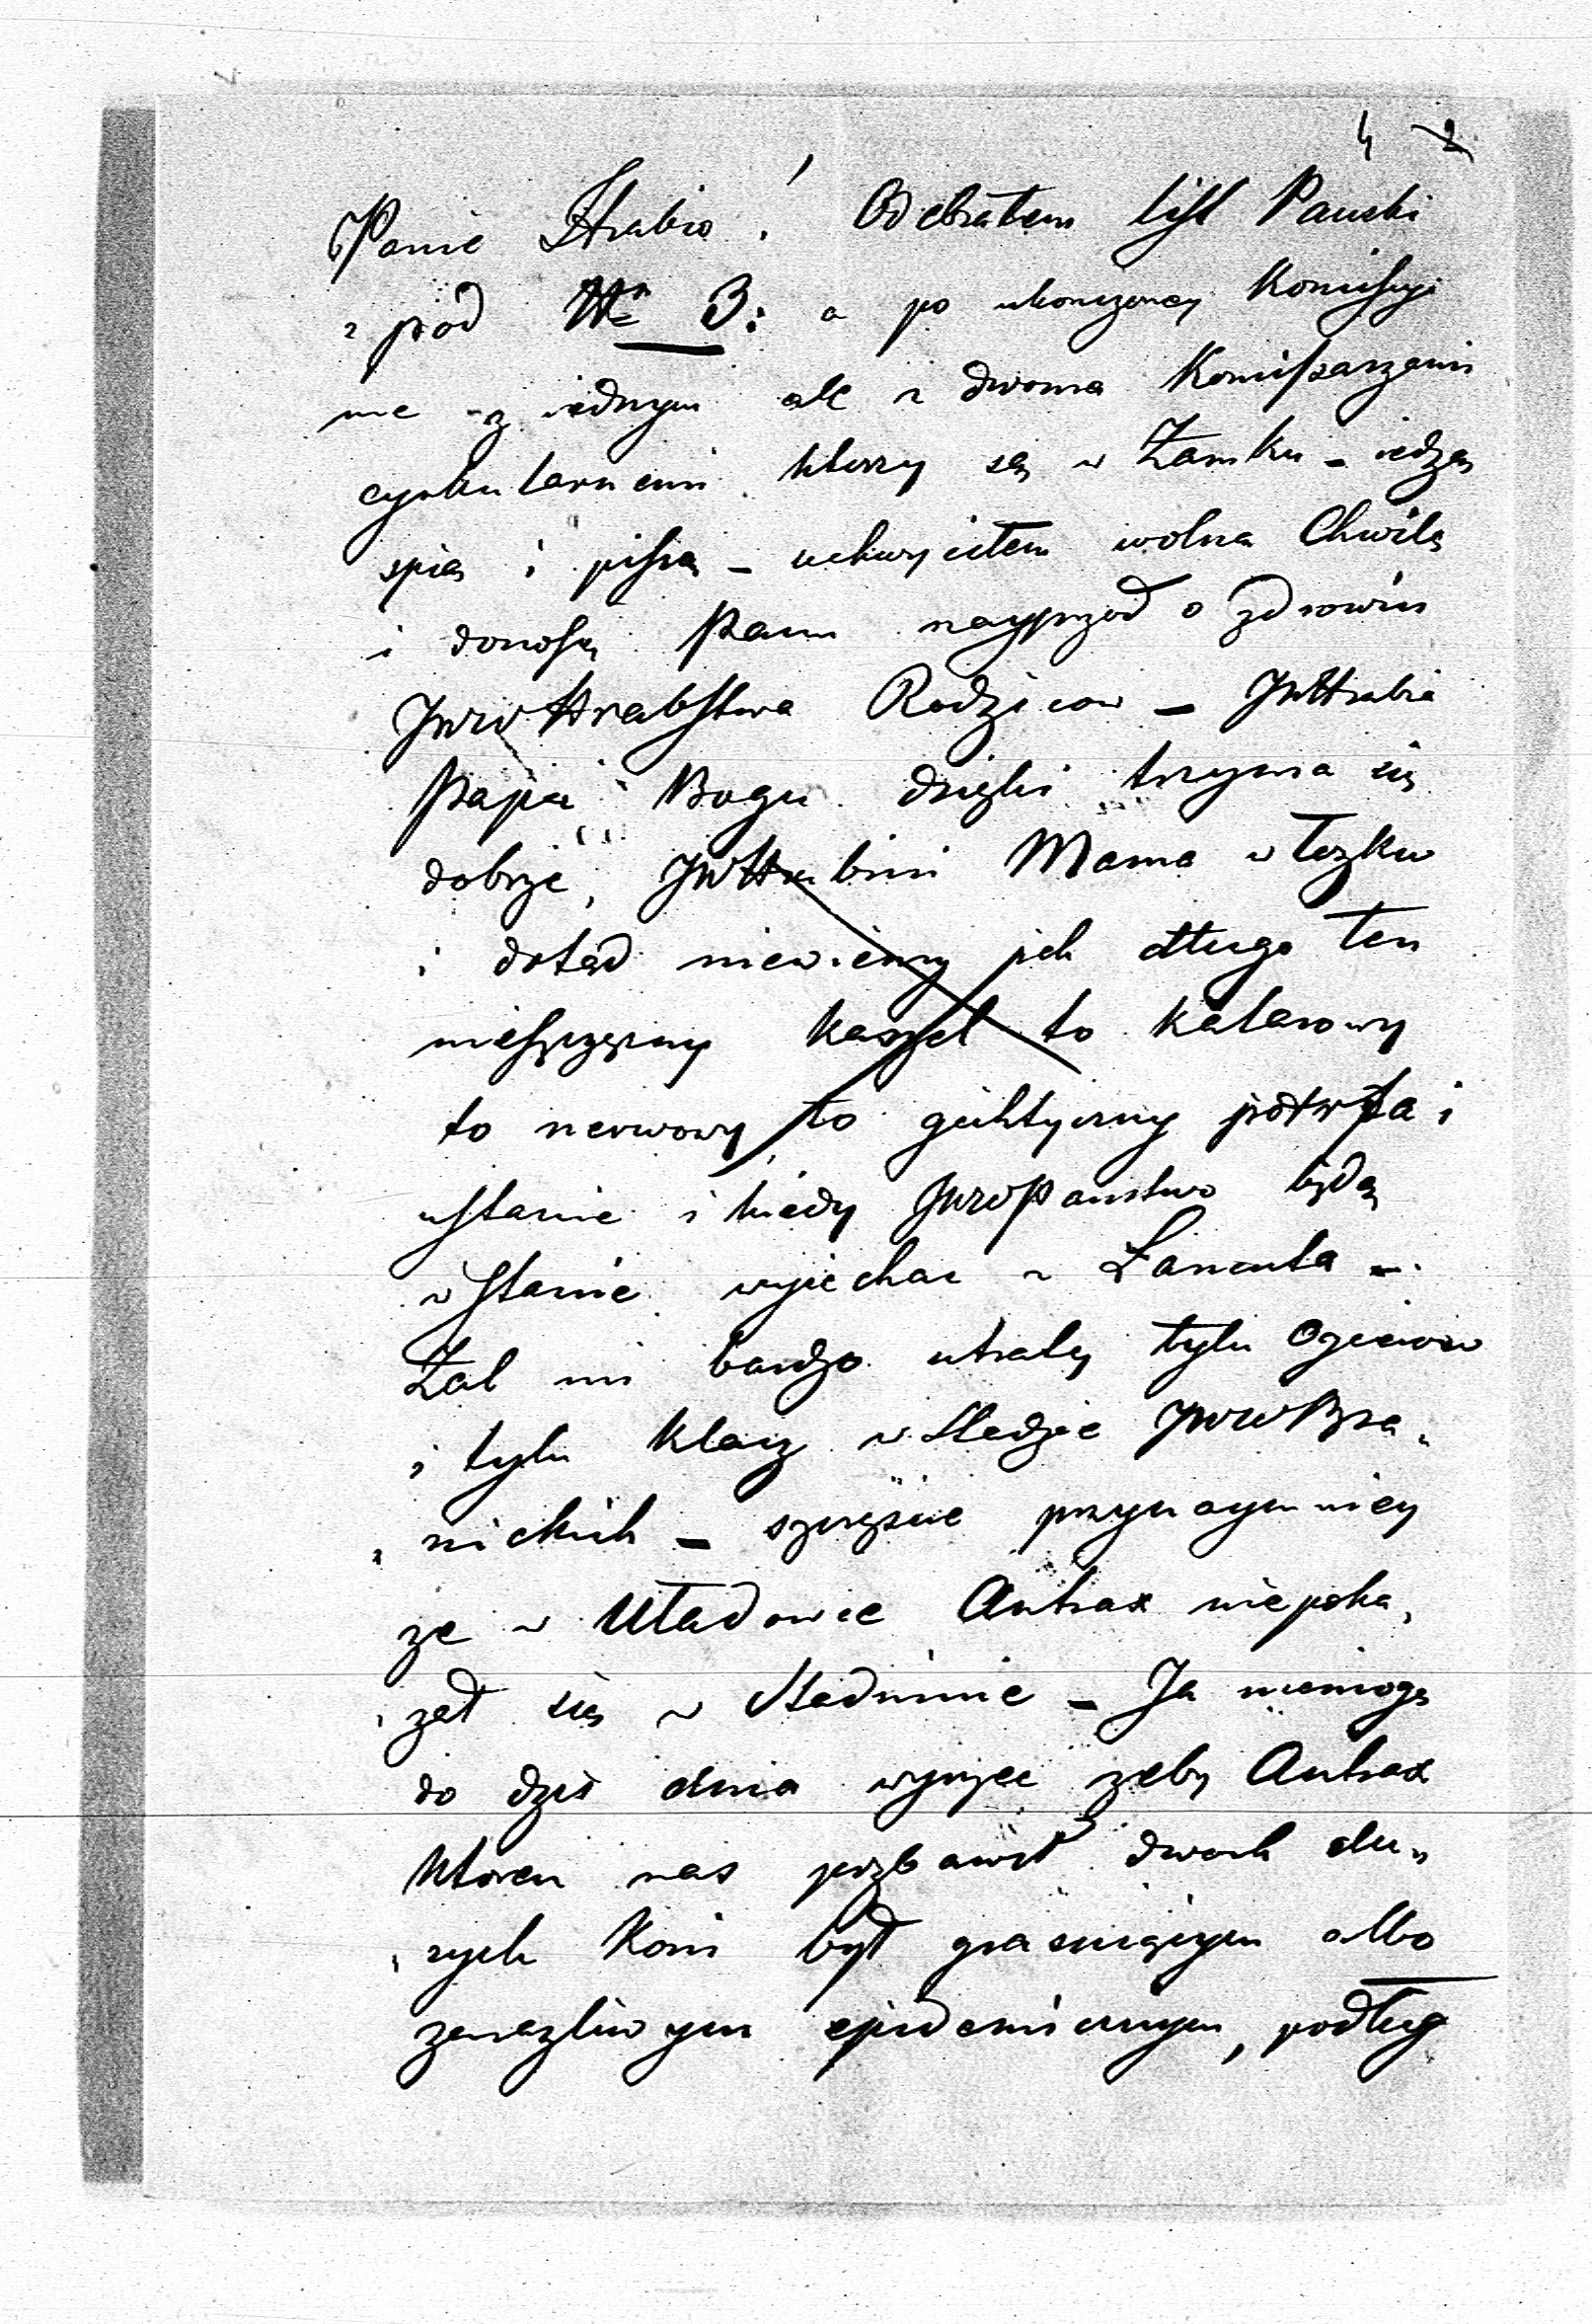 4 2
Panie Hrabio! Odebrałem list Pański
z pod Nr 3: a po ukonczoney Komissyi
nie z iednym ale z dwoma Komissarzami
cyrkularnemi ktorzy są w Zamku - iedzą
spią i piszą - uchwyciłem wolną Chwilę
i donoszę Panu nayprzod o zdrowiu
JWW Hrabstwa Rodzicow - JWHrabia
Papa Bogu dzięki trzyma się
dobrze, JWHrabini Mama w łozku
i dotąd niewiemy jak długo ten
nieszczęsny kaszel to katarowy
to nerwowy to gichtyczny potrwa i
ustanie i kiedy JWWPanstwo będą
w stanie wyiechac z Łancuta -
Żal mi bardzo utraty tylu Ogierow
i tylu klacz w stadzie JWW Bra„
„nickich - szczęscie przynaymniey
ze w Uładowce Antrax niepoka„
„zał się w Stadninie - Ja niemogę
do dzis dnia wyrzec zeby Antrax
ktoren nas pozbawił dwoch du„
„zych Koni był grasuiącym albo
zarazliwym epidemicznym, podług